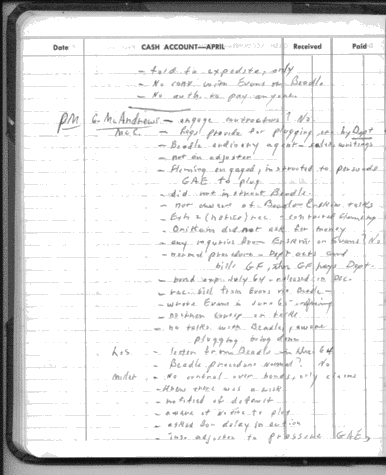 Date CASH ACCOUNT—APRIL Received Paid
- told to expedite, only
- No conv. with Evans or Beadle
- No auth. to pay anyone
PM G. McAndrews - engage contractors? No.
McC. - Regs provide for plugging, etc by Dept
- Beadle ordinary agent - sales, writings
- not an adjuster
- Fleming engaged, instructed to persuade
GAE to plug
- did not instruct Beadle
- not aware of Beadle- talks
- Exh 2 (notice) rec -
- did not ask for money
- any inquiries from or Evans? No
- normal procedure - Dept acts and
bills GF, then GF pays Dept.
- bond exp. July 64 - released in Dec.
- rec. bill from Evans via Beadle
- wrote Evans in June 65 - refusing
- no other or talks
- no talks with Beadle, aware
plugging being done
- letter from Beadle in Dec 64
Beadle procedure normal? No
- No control over bonds, only claims
- Knew there was a risk
- notified of default
- aware of notice to plug
- asked for delay in action
- adjuster to pressure GAE,